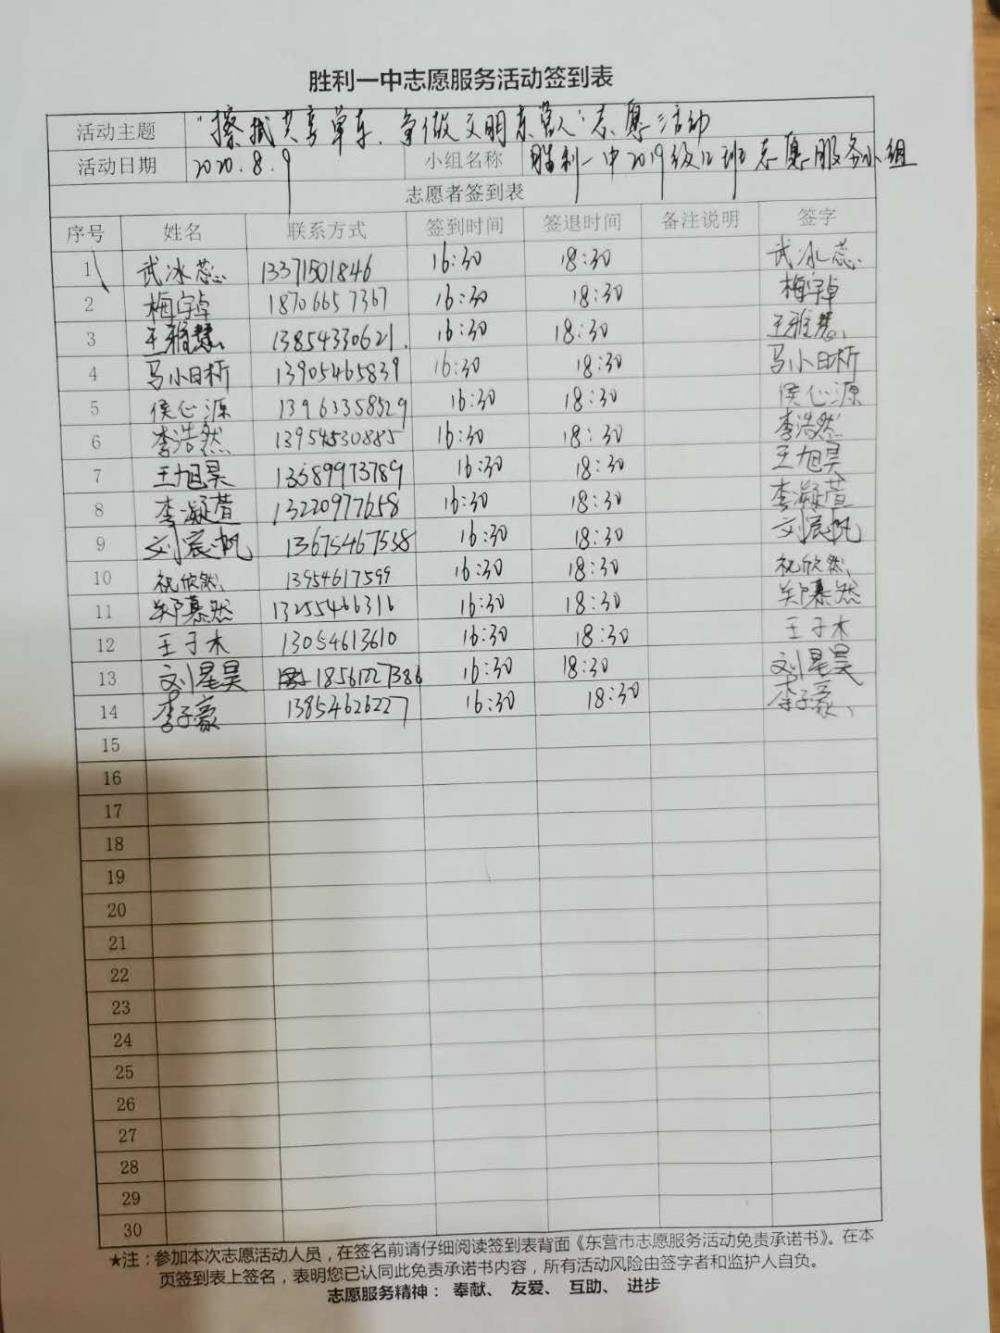 胜利一中志愿服务活动签到表
活动主题 "擦拭共享单车，争做文明东营人"志愿活动
活动日期 2020.8.9 小组名称 胜利一中2019级12班志愿服务小组
志愿者签到表
序号 姓名 联系方式 签到时间 签退时间 备注说明 签字
1 武冰蕊 13371501846 16:30 18:30 武冰蕊
2 梅宇卓 18706657367 16:30 18:30 梅宇卓
3 王雅慧 13854330621 16:30 18:30 王雅慧
4 马小日析 13905465839 16:30 18:30 马小日析
5 侯心源 13963358529 16:30 18:30 侯心源
6 李浩然 13954530885 16:30 18:30 李浩然
7 王旭昊 13589973789 16:30 18:30 王旭昊
8 李凝萱 13220977658 16:30 18:30 李凝萱
9 刘宸帆 13675467558 16:30 18:30 刘宸帆
10 祝欣然 13954617599 16:30 18:30 祝欣然
11 郑慕然 13255466316 16:30 18:30 郑慕然
12 王子木 13054613610 16:30 18:30 王子木
13 刘星昊 18561227386 16:30 18:30 刘星昊
14 李子豪 13854626227 16:30 18:30 李子豪
15
16
17
18
19
20
21
22
23
24
25
26
27
28
29
30
★注：参加本次志愿活动人员，在签名前请仔细阅读签到表背面《东营市志愿服务活动免责承诺书》。在本
页签到表上签名，表明您已认同此免责承诺书内容，所有活动风险由签字者和监护人自负。
志愿服务精神： 奉献、 友爱、 互助、 进步